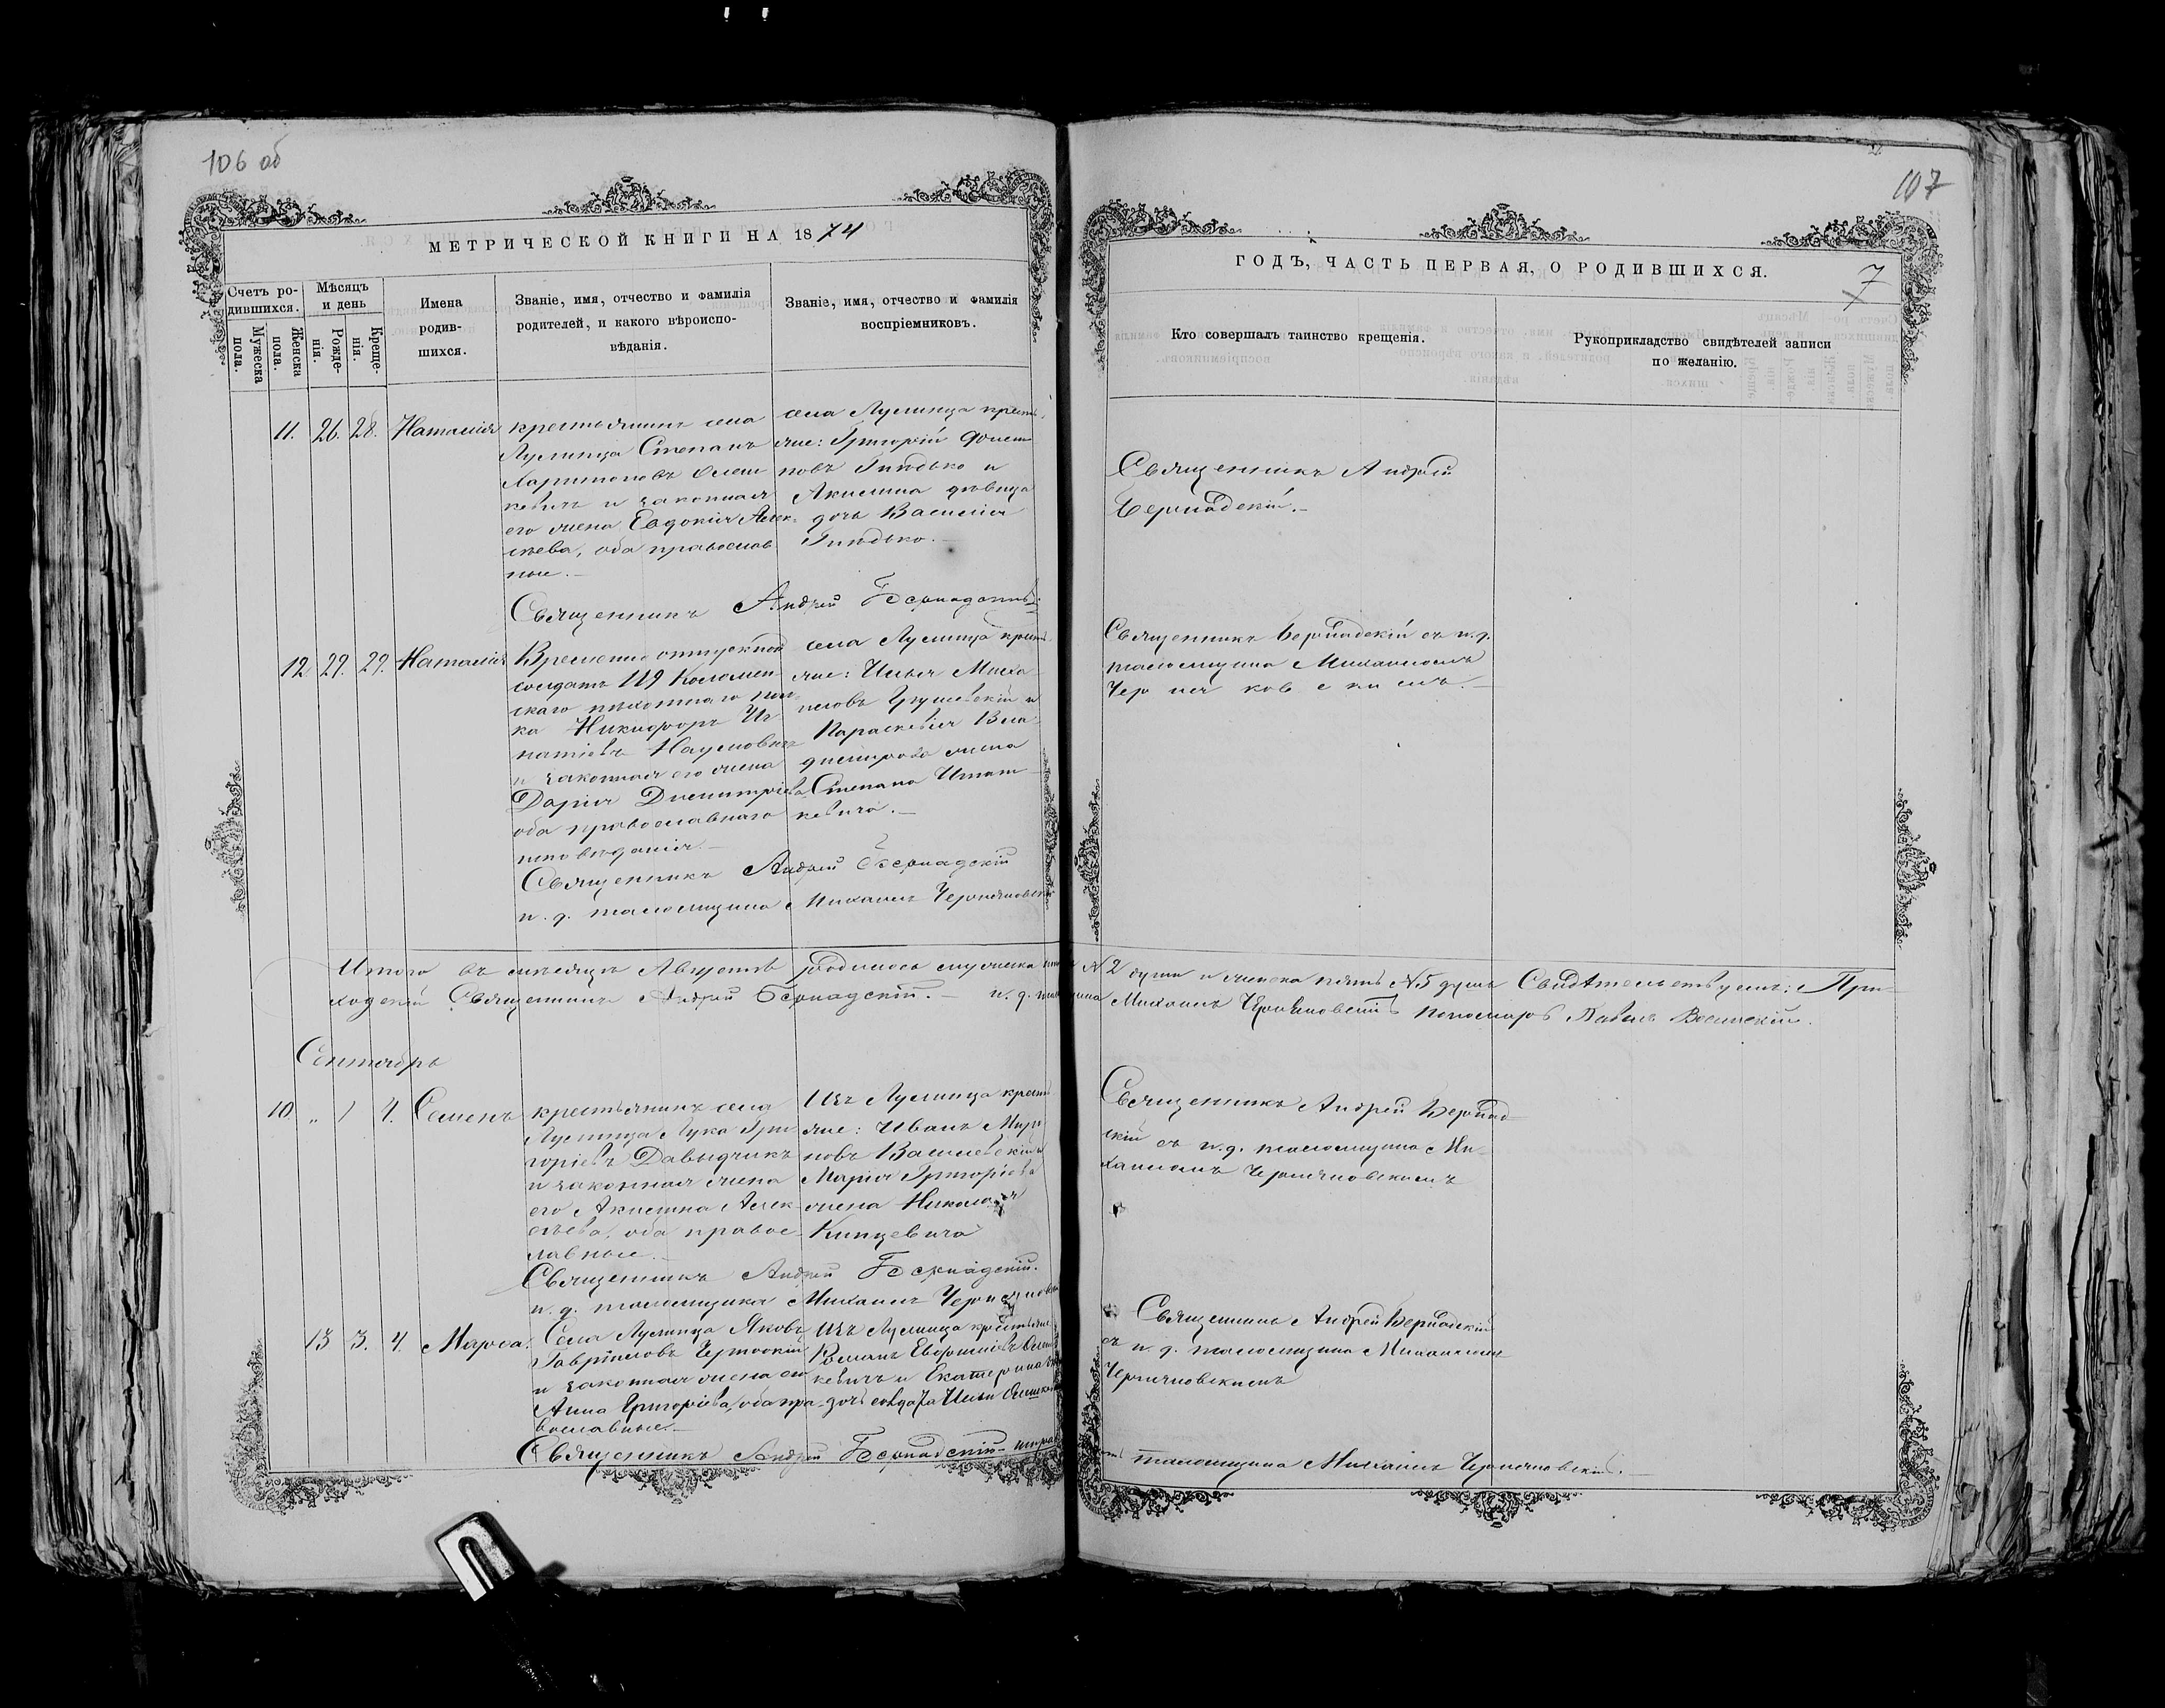 106 об
МЕТРИЧЕСКОЙ КНИГИ НА 1874
Счетъ ро-
дившихся.
Мужеска
пола.
Женска
пола.
Мѣсяцъ
и день
Рожде-
нія.
Креще-
нія.
Имена
родив-
шихся.
Званіе, имя, отчество и фамилія
родителей, и какого вѣроиспо-
вѣданія.
Званіе, имя, отчество и фамилія
воспріемниковъ.
11. 26. 28. Наталія
крестьянинъ села
Лулинца Степанъ
Харитоновъ
и законная
его жена Евдокія Алек-
сѣева, оба православ
ные.-
села Лулинца кресть-
яне: Григорій
новъ Гнѣдько и
Акилина дѣвица
дочь Василія
Гнѣдько.-
Священникъ Андрей Бернадскій
12. 29. 29. Наталія
Временно отпускной
солдатъ 119 Коломен
скаго пѣхотнаго пол-
ка Никифоръ Иг
натіевъ Наумовичъ
и законная его жена
Дарія Димитріева
оба православнаго
исповѣданія.-
села Лулинца кресть-
яне: Илья Миха
иловъ и
Параскевія Вла-
димирова жена
Степана Игнат
кевича.-
Священникъ Андрей Бернадскій
и. д. псаломщика Михаилъ Черняковскій
Итого въ мѣсяцѣ Августѣ родилось мужеска
ходскій Священникъ Андрей Бернадскій.- и. д.
Сентябрь
10 „ 1 4. Семенъ
крестьянинъ села
Лулинца Лука Гри
горіевъ Давыдчикъ
и законная жена
его Акилина Алек
сѣева, оба правос
лавные.-
Изъ Лулинца кресть
яне: Иванъ Миро
новъ Василевскій и
Марія Григоріева
жена Николая
Кинцевича
Священникъ Андрей Бернадскій.
и. д. псаломщика Михаилъ
13 3. 4. Марѳа.
Села Лулинца Яковъ
Гавріиловъ
и законная жена его
Анна Григоріева, оба пра-
вославные.-
Изъ Лулинца крестьяне
Романъ
кевичъ и Екатерина
дочь солдата Ильи
Священникъ Андрей Бернадскій
107
ГОДЪ, ЧАСТЬ ПЕРВАЯ, О РОДИВШИХСЯ.
7
Кто совершалъ таинство крещенія.
Рукоприкладство свидѣтелей записи
по желанію.
Священникъ Андрей
Бернадскій.-
Священникъ Бернадскій съ и. д.
псаломщика Михаиломъ
Черняковскимъ.-
№ 2 души и женска пять № 5 душъ Свидѣтельствуемъ: При-
Михаилъ Черняковскій Пономарь Павелъ
Священникъ Андрей Бернад-
скій съ и. д. псаломщика Ми-
хаиломъ Черняковскимъ
Священникъ Андрей Бернадскій
съ и. д. псаломщика Михаиломъ
Черняковскимъ
псаломщика Михаилъ Черняковскій.-